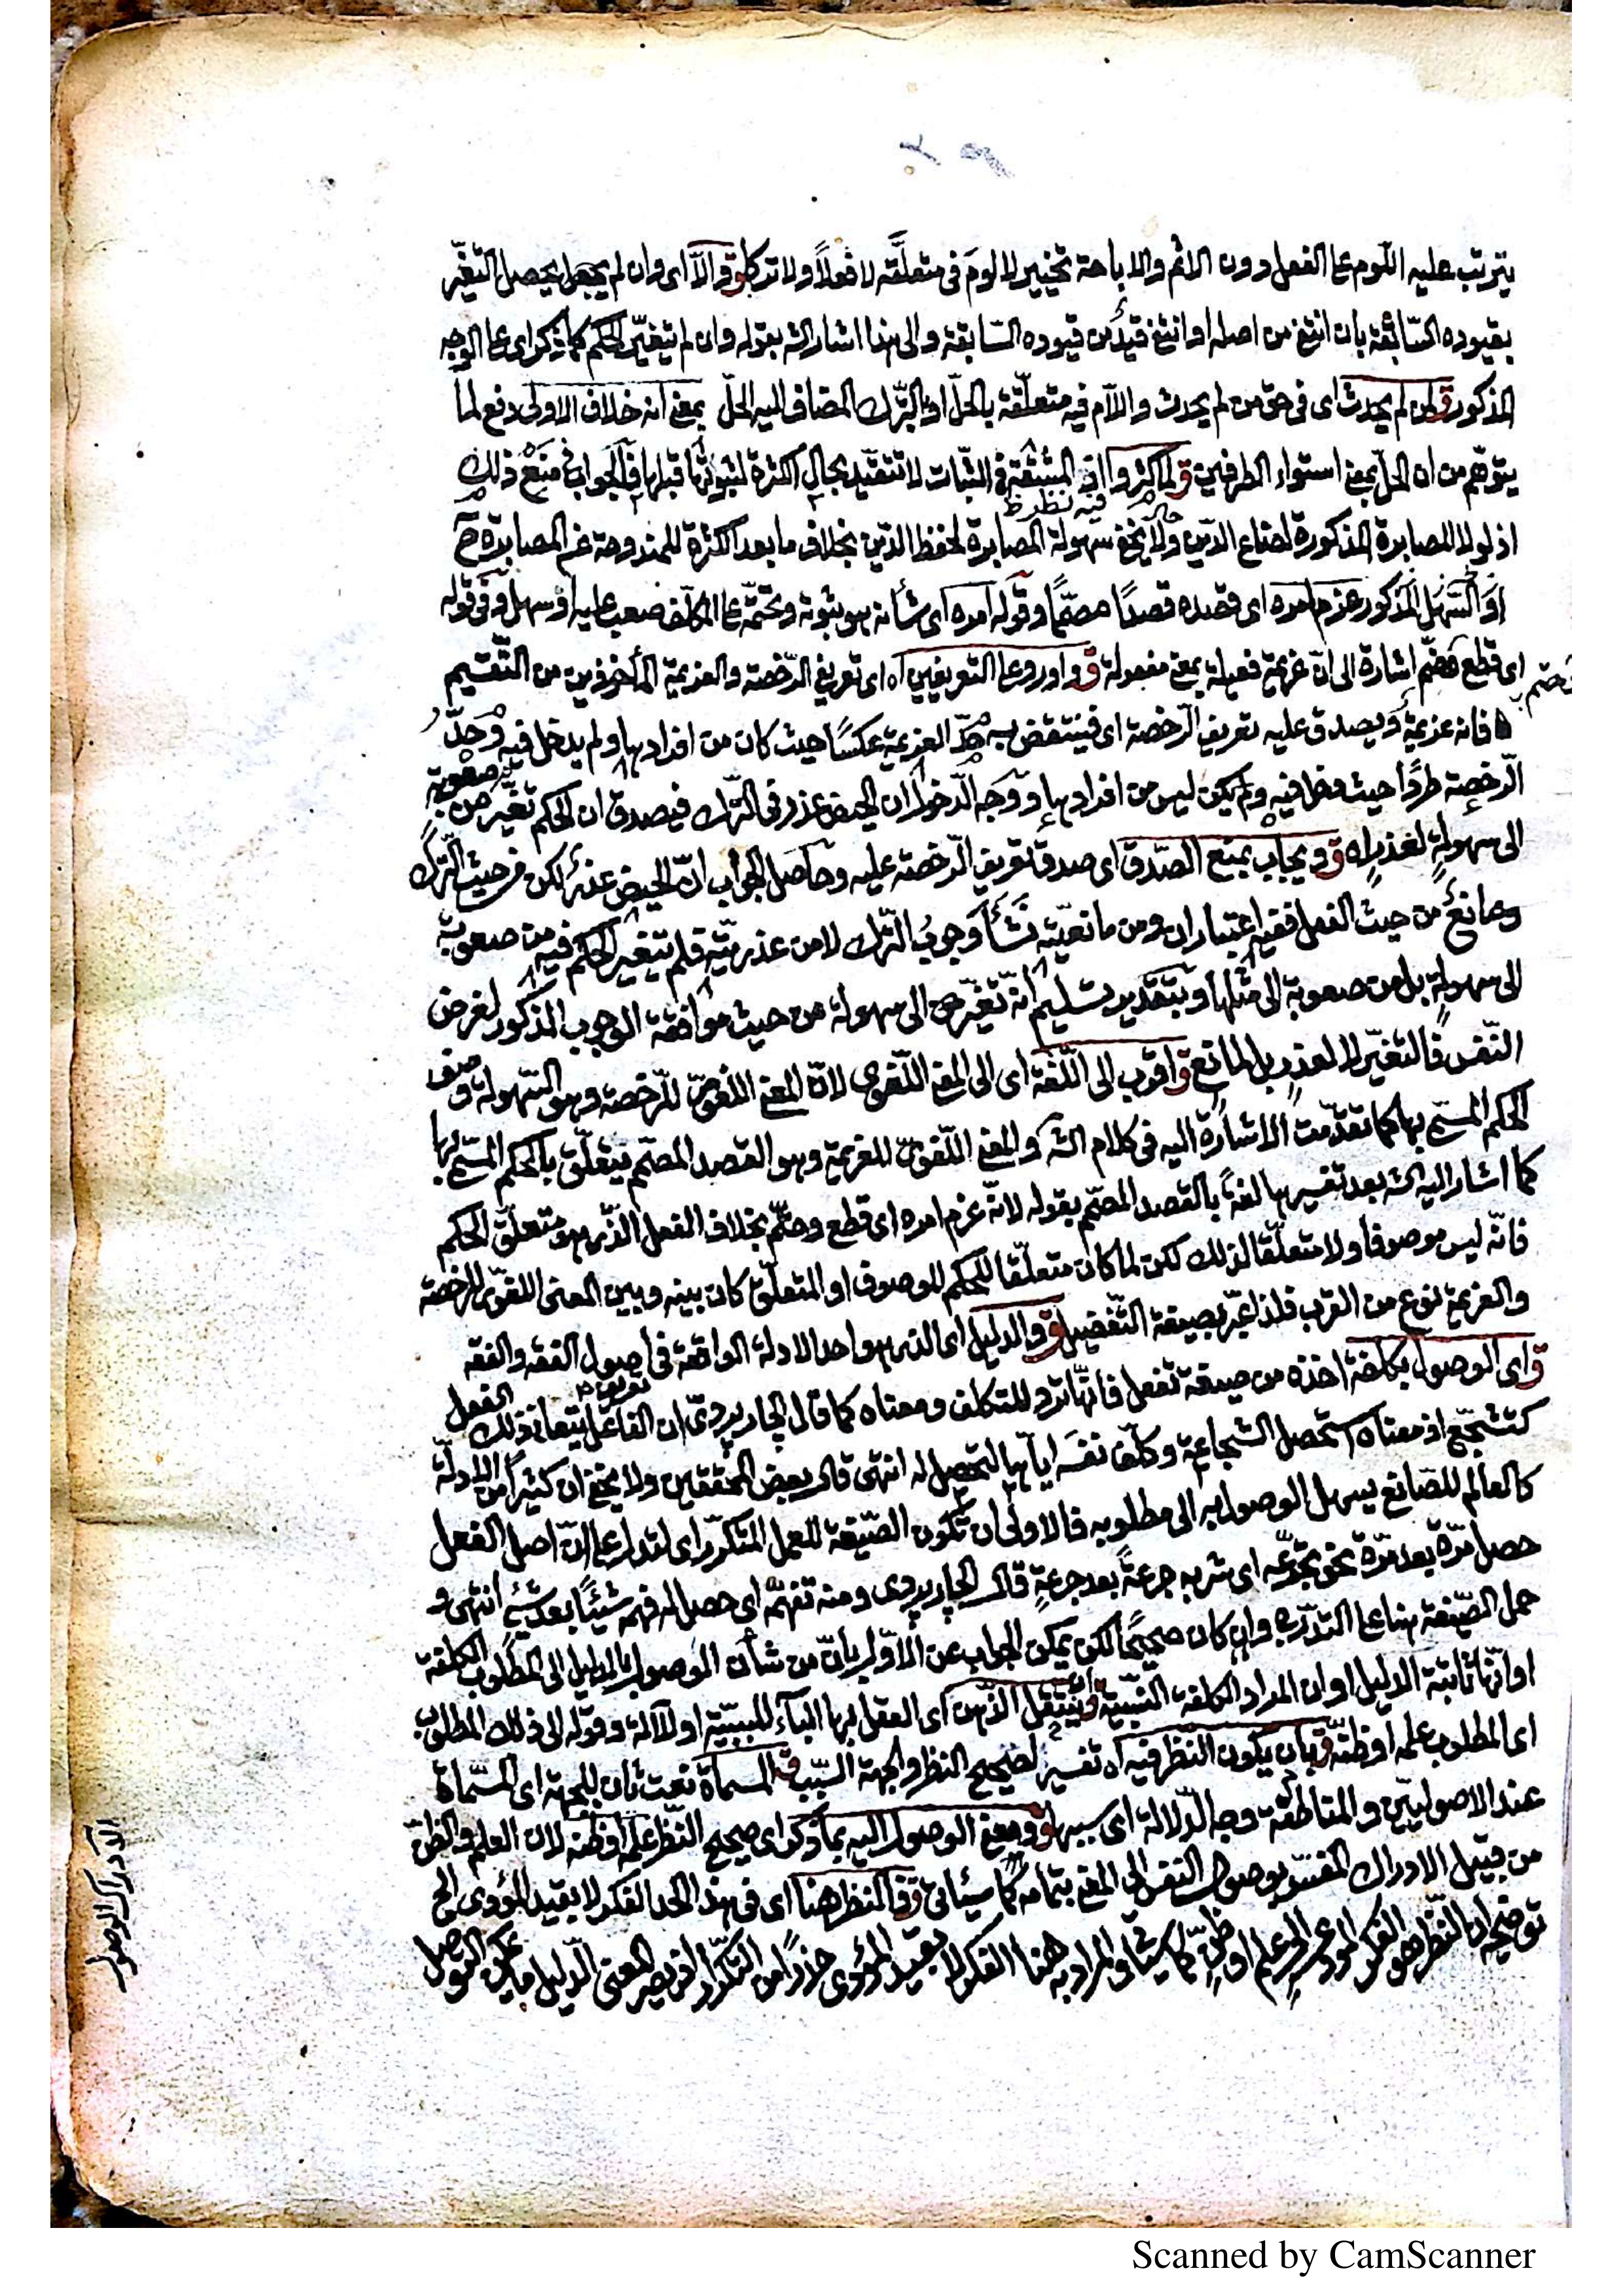 يترتب عليه اللوم على الفعل دون الاثم والاباحة تخيير لا لوم في متعلقه لا فعلاً ولا تركا ق والا اى وان لم يحصل التغير
بقيوده السابقة بان انتفى من اصله او انتفى قيد من قيوده السابقة والى هذا اشار الشه بقوله وان لم يتغير الحكم كما ذكر اى على الوجه
المذكور ق لمن لم يحدث اى فى حق من لم يحدث واللام فيه متعلقة بالحل او بالترك المضاف اليه الحل بمعنى انه خلاف الاولى دفع لما
يتوهم من ان الحل بمعنى استواء الطرفين ق لما كثروا المشقة فى الثبات لا تتقيد بحال الكثرة لثبوتها قبلها فالجواب منع ذلك
فيه نظر ظ
اذ لولا المصابرة المذكورة لضاع الدين ولا يخفى سهولة المصابرة لحفظ الدين بخلاف ما بعد الكثرة للمندوحة عن المصابرة ح
او السهل المذكور عزم امره اى قصده قصدًا مصممًا وقوله امره اى شأنه هو ثبوته وتحتمه على المكلف صعب عليه او سهل وفى قوله
اى قطع وحتم اشارة الى ان عزيمة فعيلة بمعنى مفعولة ق واورد على التعريفين اه اى تعريفى الرخصة والعزيمة المأخوذين من التقسيم
وحتم
فانه عزيمة ويصدق عليه تعريف الرخصة اى فينتقض به حد العزيمة عكسًا حيث كان من افرادها ولم يدخل فيه وحد
الرخصة طردًا حيث دخل فيه ولم يكن ليس من افرادها ووجه الدخول ان الحيض عذر فى الترك فيصدق ان الحكم تغير من صعوبة
الى سهولة لعذر اه ق ويجاب بمنع الصدق اى صدق تعريف الرخصة عليه وحاصل الجواب ان الحيض عذر لكن من حيث الترك
ومانع من حيث الفعل ففيه اعتباران ومن مانعيته نشأ وجوب الترك لا من عذريته فلم يتغير الحكم فيه من صعوبة
الى سهولة بل من صعوبة الى مثلها وبتقدير تسليم انه تغير الى سهولة من حيث موافقة الوجوب المذكور لغرض
النفس فالتغير لا لعذر بل لمانع ق اقرب الى اللغة اى الى المعنى اللغوى لان المعنى اللغوى للرخصة وهو السهولة وصف
الحكم المسمى بها كما تقدمت الاشارة اليه فى كلام الشه والمعنى اللغوى للعزيمة وهو القصد المصمم يتعلق بالحكم المسمى بها
كما اشار اليه الشه بعد تفسيرها لغة بالقصد المصمم بقوله لانه عزم امره اى قطع وحتم بخلاف الفعل الذى هو متعلق الحكم
فانه ليس موصوفا ولا متعلقا لذلك لكن لما كان متعلقا للحكم الموصوف او المتعلق كان بينه وبين المعنى اللغوى للرخصة
والعزيمة نوع من القرب فلذا عبر بصيغة التفضيل ق والدليل اى الذى هو احد الادلة الواقعة فى اصول الفقه والفقه
ق اى الوصول بكلفة اخذه من صيغة تفعل فانها ترد للتكلف ومعناه كما قال الجاربردى ان الفاعل يتعانى ذلك الفعل
كتشجع اذ معناه استحصل الشجاعة وكلف نفسه اياها لتحصل له انتهى قال بعض المحققين ولا يخفى ان كثيراً من الادلة
كالعالم للصانع يسهل الوصول به الى مطلوبه فالاولى ان تكون الصيغة للعمل المتكرر اى لتدل على ان اصل الفعل
حصل مرة بعد مرة نحو تجرعه اى شربه جرعة بعد جرعة قال الجاربردى ومنه تفهم اى حصل له فهم شيئًا بعد شئ انتهى و
حمل الصيغة هنا على التدرج وان كان صحيحًا لكن يمكن الجواب عن الاول بان من شأن الموصول بالدليل الى المطلوب الكلفة
او انها ثابتة الدليل او ان المراد الكلفة النسبية ق ينتقل الذهن اى العقل بها الباء للسببية او للآلة وقوله الى ذلك المطلوب
اى المطلوب علمه او ظنه ق بان يكون النظر فيه اه تفسير لصحيح النظر والجهة السبب ق المسماة نعت ثان للجهة اى المسماة
عند الاصوليين والمناطقة وجه الدلالة اى سببها ق ومعنى الوصول اليه بما ذكر اى صحيح النظر علمه او ظنه لان العلم والظن
من قبيل الادراك المفسر بوصول النفس الى المعنى بتمامه كما سيأتى ق فالنظر هنا اى فى هذا الحد الفكر لا بقيد المؤدى الخ
توضيحه ان النظر هو الفكر المؤدى الى علم او ظن كما سيأتى والمراد به هنا الفكر لا بقيد المؤدى حذرًا من التكرار اذ يصير المعنى الدليل ما يمكن التوصل
الادراك الوصول